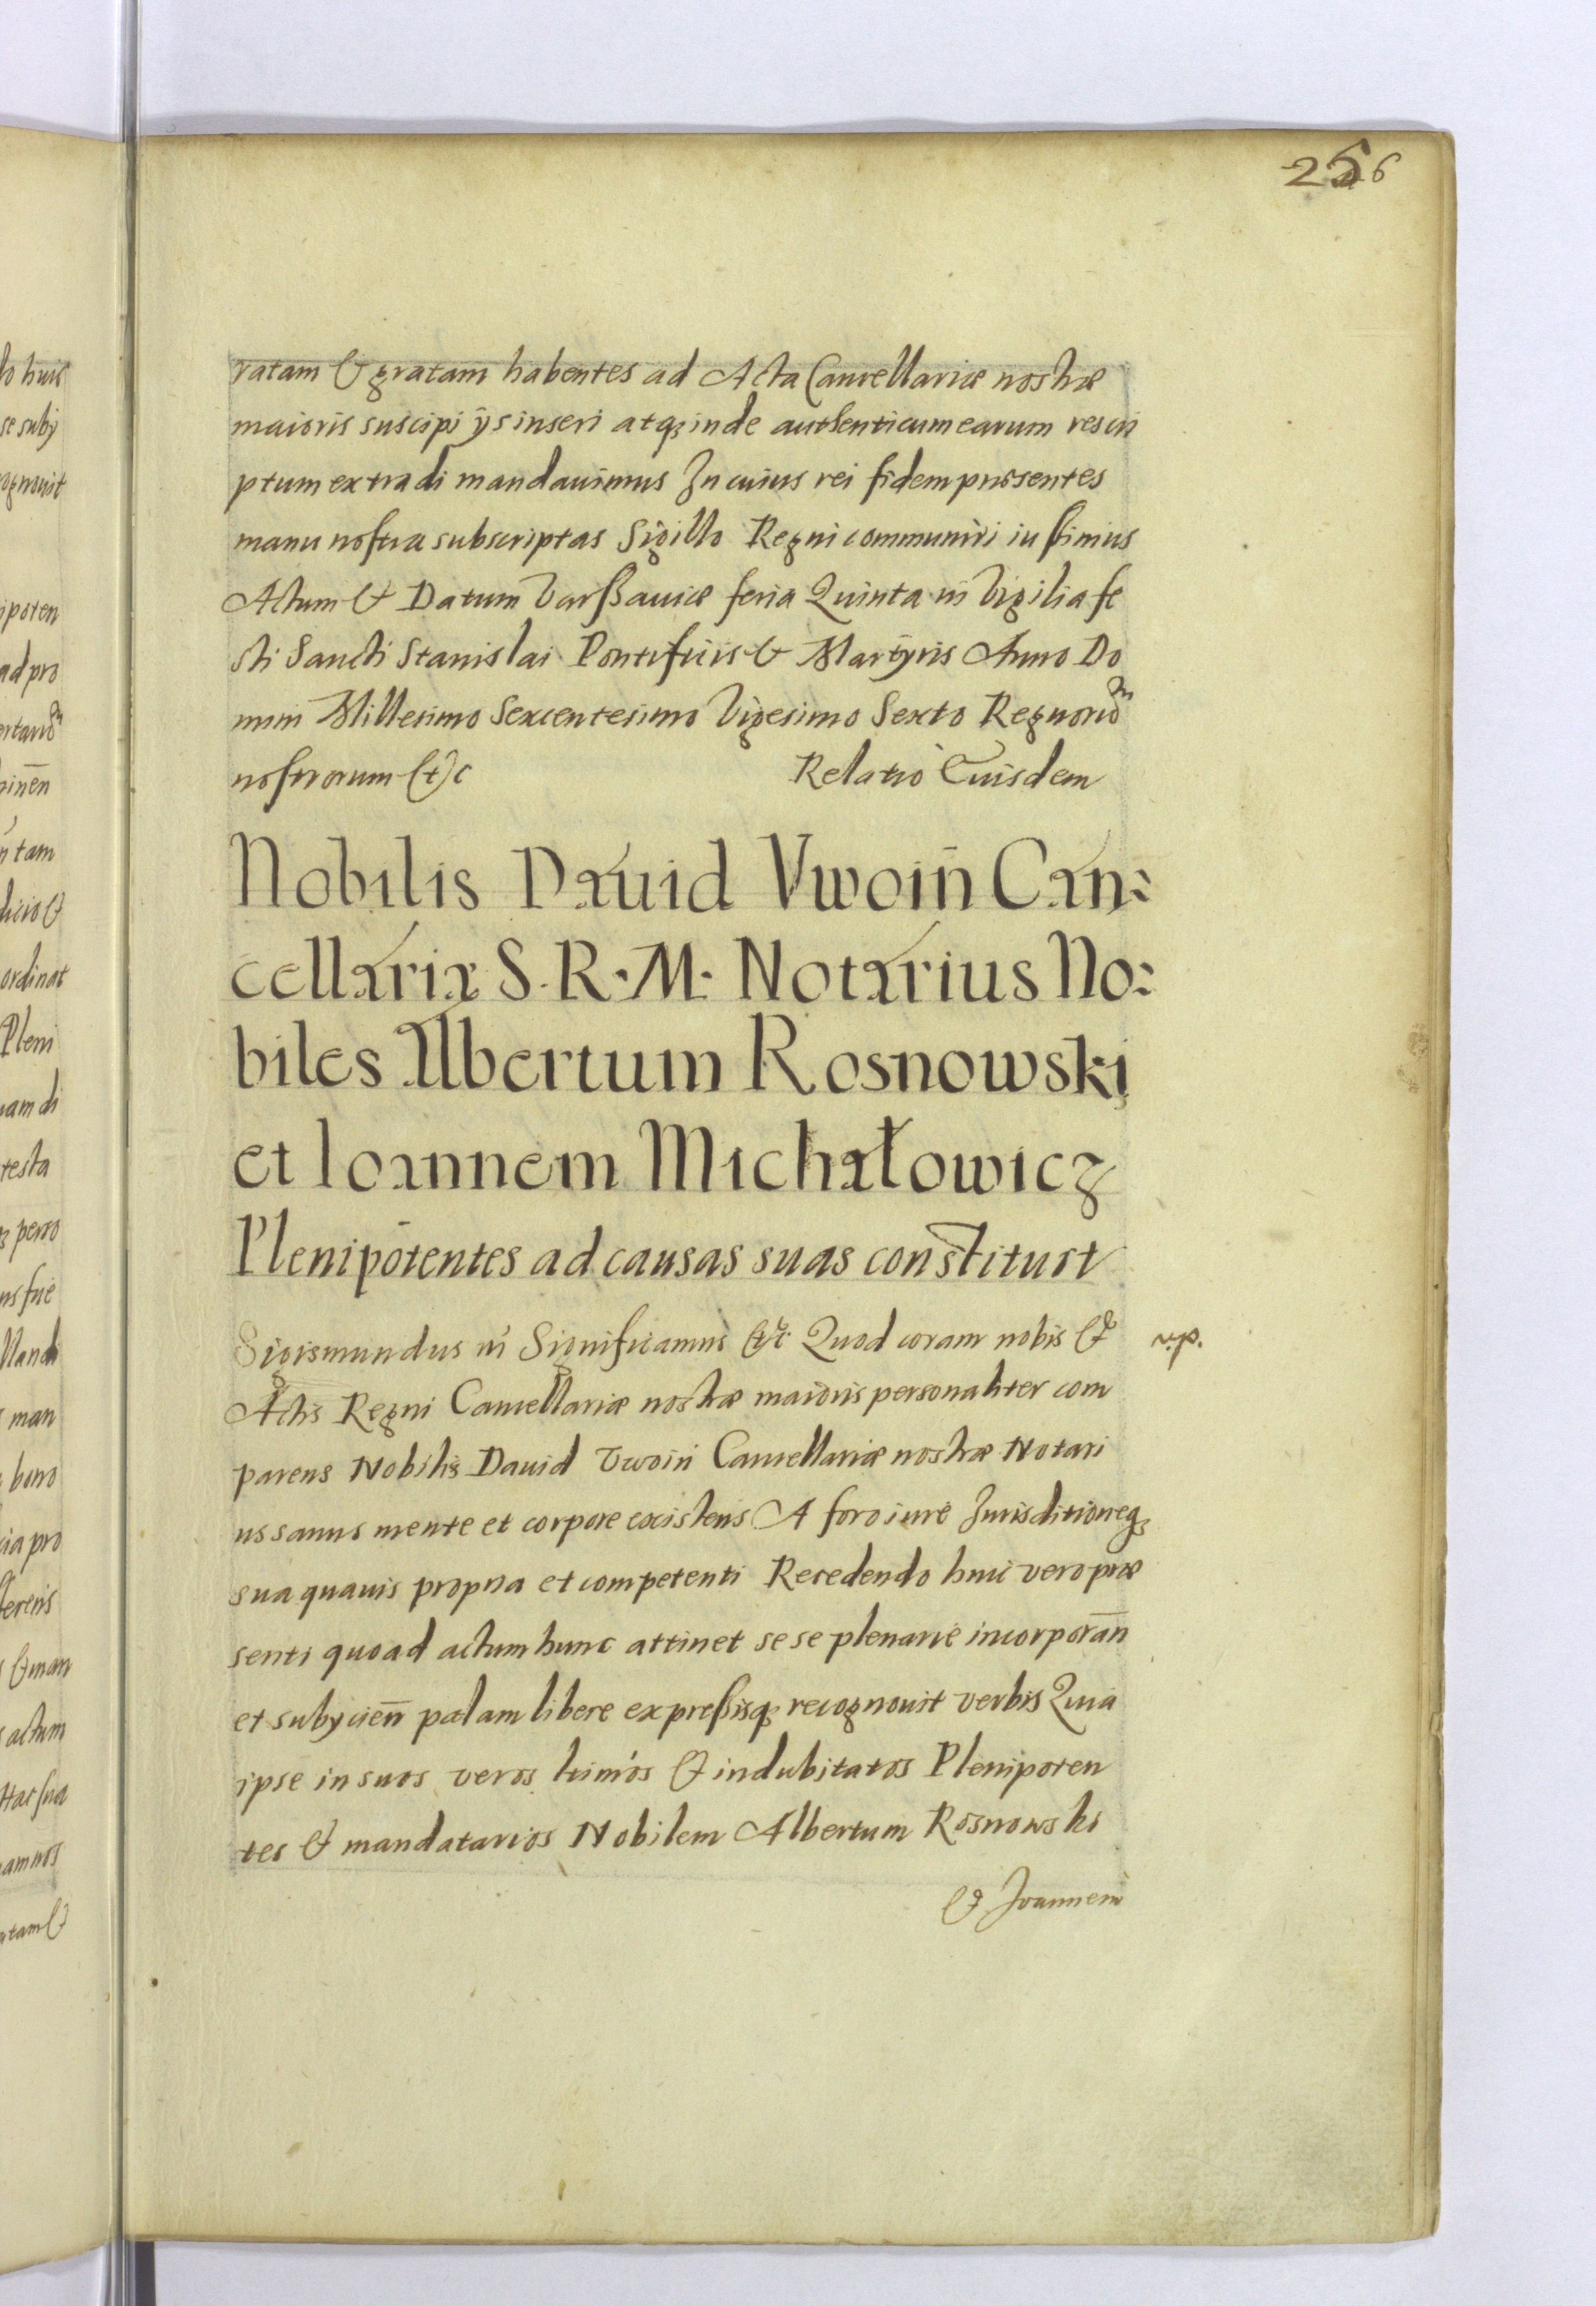 256
ratam & gratam habentes ad Acta Cancellariæ nostræ
maioris suscipi ÿs inseri atq; inde authenticum earum rescri
ptum extradi mandauimus In cuius rei fidem præsentes
manu nostra subscriptas Sigillo Regni communiri iussimus
Actum & Datum Varssauiæ feria Quinta in Vigilia fe
sti Sancti Stanislai Pontificis & Martÿris Anno Do
mini Millesimo Sexcentesimo Vigesimo Sexto Regnorum
nostrorum &c Relatio Eiusdem
Nobilis Dauid Vwoin Can:
cellariæ S. R. M. Notarius No:
biles Albertum Rosnowski
et Ioannem Michałowicz
Plenipotentes ad causas suas constituit
Sigismundus in Significamus &c Quod coram nobis &
Actis Regni Cancellariæ nostræ maioris personaliter com
parens Nobilis Dauid Vwoin Cancellariæ nostræ Notari
us sanus mente et corpore existens A foro iure Jurisditioneq;
sua quauis propria et competenti Recedendo huic vero præ
senti quoad actum hunc attinet sese plenarie incorporan̄
et subÿcien̄ palam libere expressisq; recognouit verbis Quia
ipse in suos veros ltimos & indubitatos Plenipoten
tes & mandatarios Nobilem Albertum Rosnowski
& Joannem